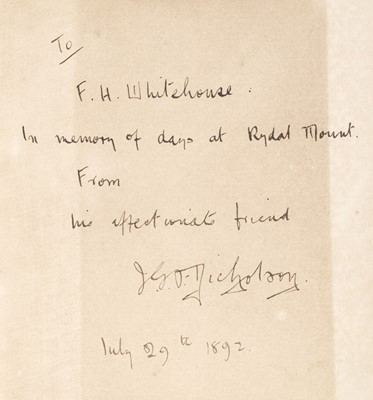 To
F. H. Whitehouse.
In memory of days at Rydal Mount.
From
his affectionate friend
J. G. F. Nicholson.
July 29th 1892.